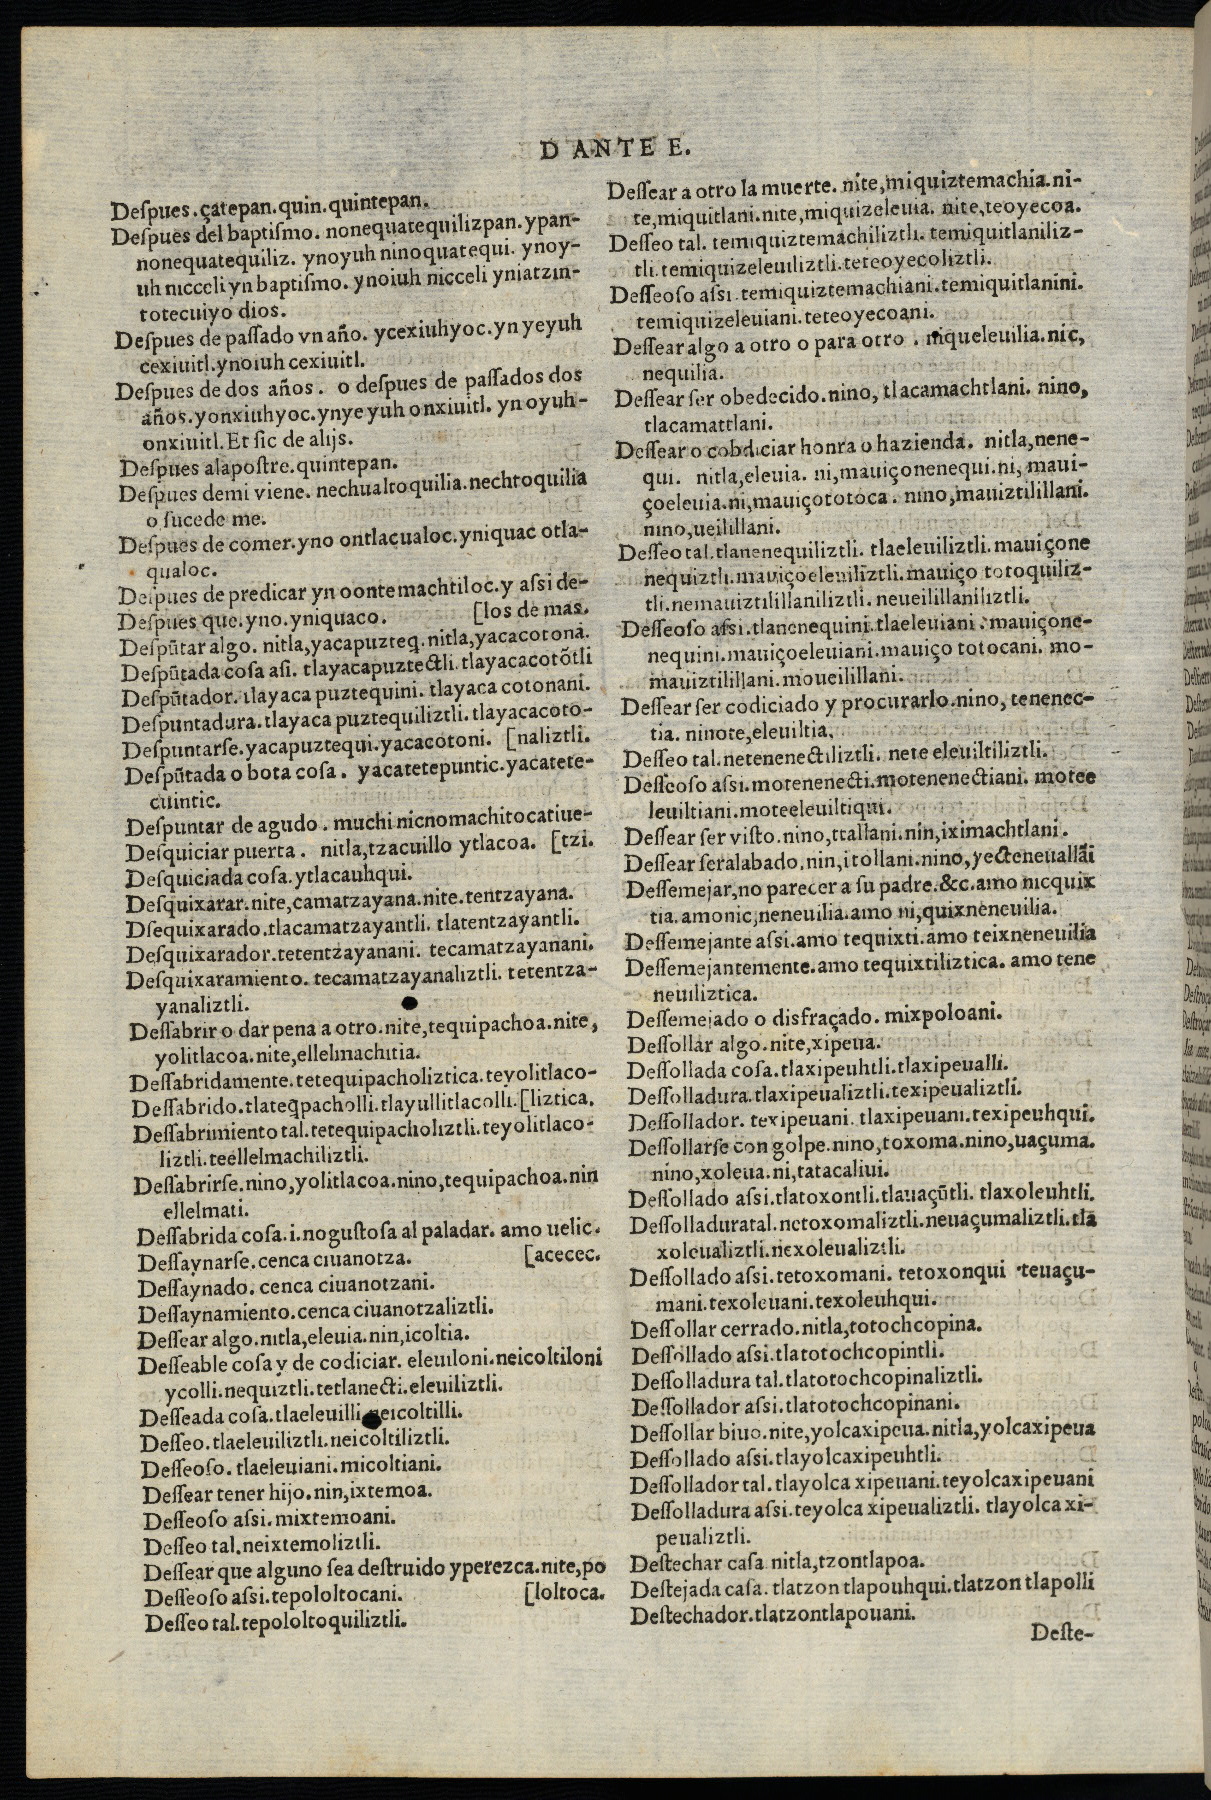 D ANTE E.
Deſpues.çatepan.quin.quintepan.
Deſpues del baptiſmo. nonequatequilizpan.ypan-
nonequatequiliz. ynoyuh ninoquatequi. ynoy-
uh nicceli yn baptiſmo. ynoiuh nicceli yniatzin-
totecuiyo dios.
Deſpues de paſſado vn año. ycexiuhyoc.yn yeyuh
cexiuitl.ynoiuh cexiuitl.
Deſpues de dos años. o deſpues de paſſados dos
años.yonxiuhyoc.ynyeyuh onxiuitl. yn oyuh-
onxiuitl.Et ſic de alijs.
Deſpues alapoſtre.quintepan.
Deſpues demi viene. nechualtoquilia.nechtoquilia
o ſucede me.
Deſpues de comer.yno ontlacualoc.yniquac otla-
qualoc.
Deſpues de predicar yn oontemachtiloc.y aſſi de-
Deſpues que.yno.yniquaco. [los de mas.
Deſpũtar algo. nitla,yacapuzteq.nitla,yacacotona.
Deſpũtada coſa aſi. tlayacapuztectli.tlayacacotõtli
Deſpũtador.tlayaca puztequini. tlayaca cotonani.
Deſpuntadura.tlayaca puztequiliztli.tlayacacoto-
Deſpuntarſe.yacapuztequi.yacacotoni. [naliztli.
Deſpũtada o bota coſa. yacatetepuntic.yacatete-
cuintic.
Deſpuntar de agudo. muchi nicnomachitocatiue-
Deſquiciar puerta. nitla,tzacuillo ytlacoa. [tzi.
Deſquiciada coſa.ytlacauhqui.
Deſquixarar.nite,camatzayana.nite.tentzayana.
Dſequixarado.tlacamatzayantli. tlatentzayantli.
Deſquixarador.tetentzayanani. tecamatzayanani.
Deſquixaramiento. tecamatzayanaliztli. tetentza-
yanaliztli.
Deſſabrir o dar pena a otro.nite,tequipachoa.nite,
yolitlacoa.nite,ellelmachitia.
Deſſabridamente.tetequipacholiztica.teyolitlaco-
Deſſabrido.tlateq̃pacholli.tlayullitlacolli.[liztica.
Deſſabrimiento tal.tetequipacholiztli.teyolitlaco-
liztli.teellelmachiliztli.
Deſſabrirſe.nino,yolitlacoa.nino,tequipachoa.nin
ellelmati.
Deſſabrida coſa.i.noguſtoſa al paladar. amo uelic.
Deſſaynarſe.cenca ciuanotza. [acecec.
Deſſaynado. cenca ciuanotzani.
Deſſaynamiento.cenca ciuanotzaliztli.
Deſſear algo.nitla,eleuia.nin,icoltia.
Deſſeable coſa y de codiciar. eleuiloni.neicoltiloni
ycolli.nequiztli.tetlanecti.eleuiliztli.
Deſſeada coſa.tlaeleuilli.neicoltilli.
Deſſeo.tlaeleuiliztli.neicoltiliztli.
Deſſeoſo. tlaeleuiani.micoltiani.
Deſſear tener hijo.nin,ixtemoa.
Deſſeoſo aſſi.mixtemoani.
Deſſeo tal.neixtemoliztli.
Deſſear que alguno ſea deſtruido yperezca.nite,po
Deſſeoſo aſſi.tepololtocani. [loltoca.
Deſſeo tal.tepololtoquiliztli.
Deſſear a otro la muerte. nite,miquiztemachia.ni-
te,miquitlani.nite,miquizeleuia. nite,teoyecoa.
Deſſeo tal. temiquiztemachiliztli. temiquitlaniliz-
tli.temiquizeleuiliztli.teteoyecoliztli.
Deſſeoſo aſſi.temiquiztemachiani.temiquitlanini.
temiquizeleuiani.teteoyecoani.
Deſſear algo a otro o para otro. niqueleuilia.nic,
nequilia.
Deſſear ſer obedecido.nino, tlacamachtlani. nino,
tlacamattlani.
Deſſear o cobdiciar honra o hazienda. nitla,nene-
qui. nitla,eleuia. ni,mauiçonenequi.ni, maui-
çoeleuia.ni,mauiçototoca. nino,mauiztilillani.
nino,ueilillani.
Deſſeo tal.tlanenequiliztli. tlaeleuiliztli.mauiçone
nequiztli.mauiçoeleuiliztli.mauiço totoquiliz-
tli.nemauiztilillaniliztli. neueilillaniliztli.
Deſſeoſo aſſi.tlanenequini.tlaeleuiani.mauiçone-
nequini.mauiçoeleuiani.mauiço totocani. mo-
mauiztilillani.moueilillani.
Deſſear ſer codiciado y procurarlo.nino, tenenec-
tia. ninote,eleuiltia.
Deſſeo tal.netenenectiliztli. nete eleuiltiliztli.
Deſſeoſo aſſi.motenenecti.motenenectiani. motee
leuiltiani.moteeleuiltiqui.
Deſſear ſer viſto.nino,ttallani.nin,iximachtlani.
Deſſear ſeralabado.nin,itollani.nino,yecteneuallãi
Deſſemejar,no parecer a ſu padre.&c.amo nicquix
tia.amonic,neneuilia.amo ni,quixneneuilia.
Deſſemejante aſſi.amo tequixti.amo teixneneuilia
Deſſemejantemente.amo tequixtiliztica. amo tene
neuiliztica.
Deſſemejado o disfraçado. mixpoloani.
Deſſollar algo.nite,xipeua.
Deſſollada coſa.tlaxipeuhtli.tlaxipeualli.
Deſſolladura.tlaxipeualiztli.texipeualiztli.
Deſſollador. texipeuani. tlaxipeuani.texipeuhqui.
Deſſollarſe con golpe.nino,toxoma.nino,uaçuma.
nino,xoleua.ni,tatacaliui.
Deſſollado aſſi.tlatoxontli.tlauaçũtli. tlaxoleuhtli.
Deſſolladuratal.netoxomaliztli.neuaçumaliztli.tla
xoleualiztli.nexoleualiztli.
Deſſollado aſſi.tetoxomani. tetoxonqui.teuaçu-
mani.texoleuani.texoleuhqui.
Deſſollar cerrado.nitla,totochcopina.
Deſſollado aſſi.tlatotochcopintli.
Deſſolladura tal.tlatotochcopinaliztli.
Deſſollador aſſi.tlatotochcopinani.
Deſſollar biuo.nite,yolcaxipeua.nitla,yolcaxipeua
Deſſollado aſſi.tlayolcaxipeuhtli.
Deſſollador tal.tlayolca xipeuani.teyolcaxipeuani
Deſſolladura aſſi.teyolca xipeualiztli. tlayolca xi-
peualiztli.
Deſtechar caſa nitla,tzontlapoa.
Deſtejada caſa.tlatzon tlapouhqui.tlatzon tlapolli
Deſtechador.tlatzontlapouani.
Deſte-